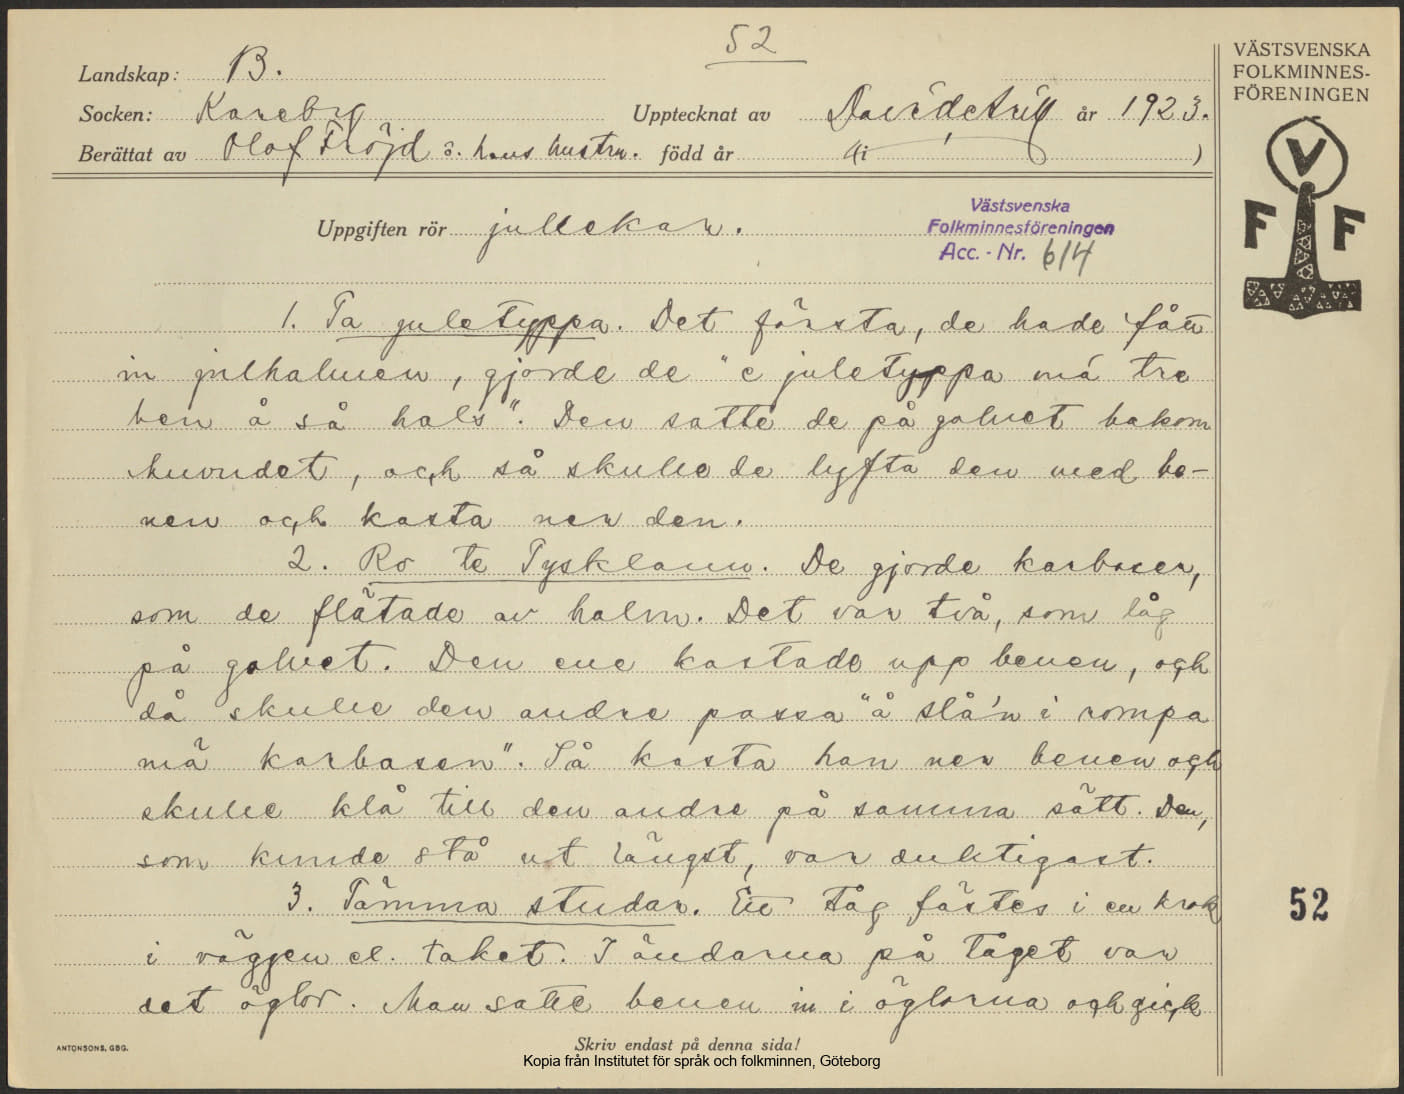 52
Landskap: B.
Socken: Kareby Upptecknat av David Arill år 1923.
Berättat av Olof Fröjd o. hans hustru. född år i )
VÄSTSVENSKA
FOLKMINNES-
FÖRENINGEN
V
F F
Uppgiften rör jullekar.
Västsvenska
Folkminnesföreningen
Acc. - Nr. 614
1. Ta juletyppa. Det första, de hade fått
in julhalmen, gjorde de "e juletyppa má tre
ben å så hals". Den satte de på golvet bakom
huvudet, och så skulle de lyfta den med be-
nen och kasta ner den.
2. Ro te Tysklann. De gjorde karbaser,
som de flätade av halm. Det var två, som låg
på golvet. Den ene kastade upp benen, och
då skulle den andre passa "å slå'n i rompa
mä karbasen". Så kasta han ner benen och
skulle klå till den andre på samma sätt. Den,
som kunde stå ut längst, var duktigast.
3. Tämma studar. Ett tåg fästes i en krok
i väggen el. taket. I ändarna på tåget var
det öglor. Man satte benen in i öglorna och gick
52
ANTONSONS, GBG.
Skriv endast på denna sida!
Kopia från Institutet för språk och folkminnen, Göteborg